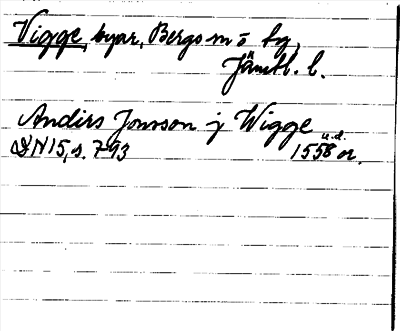 Vigge, byar, Bergs sn o by,
Jämtl. l.
Anders Jonsson j Wigge
u.d.
DN 15, s. 793 1558 or.